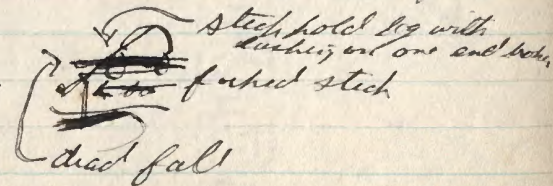 stick hold leg with
lashing on one end broken
forked stick
dead fall